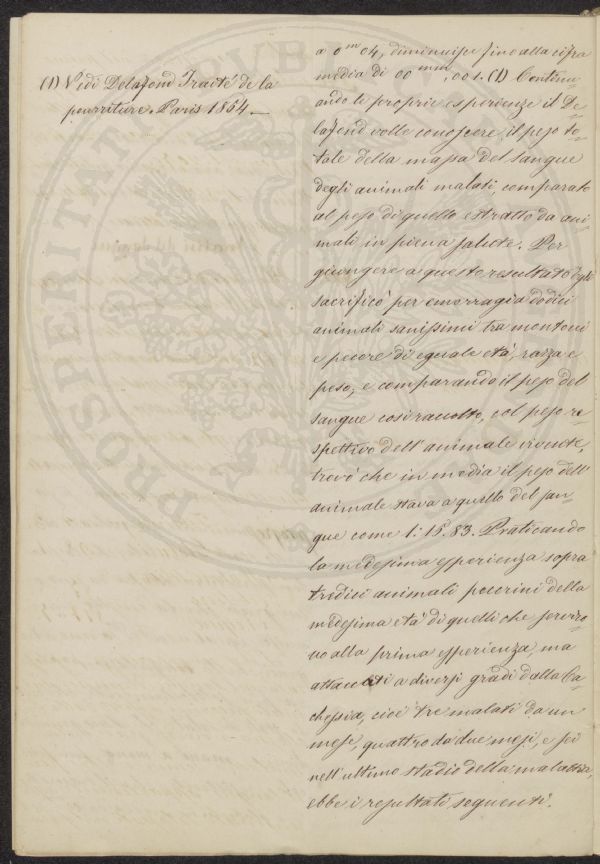 (1) Vedi Delafond Traité de la
pourriture. Paris 1854.—
a 0m 04, diminuisse fino alla cifra
media di 00mm,001. (1) Continu=
ando le proprie esperienze il De=
lafond volle conoscere il peso to=
tale della massa del sangue
degli animali malati, comparato
al peso di quello estratto da ani=
mali in piena salute. Per
giungere a questo resultato egli
sacrificò per emorragia dodici
animali sanissimi tra montoni
e pecore di eguale età, razza e
peso, e comparando il peso del
sangue così raccolto, col peso re=
spettivo dell'animale vivente,
trovò che in media il peso dell'
animale stava a quello del san=
gue come 1: 15.83. Praticando
la medesima esperienza sopra
tredici animali pecorini della
medesima età di quelli che serviro=
no alla prima esperienza, ma
attaccati a diversi gradi dalla Ca=
chessia, cioè tre malati da un
mese, quattro da due mesi, e sei
nell'ultimo stadio della malattia,
ebbe i resultati seguenti.
PUBLI
PROSPERITAT